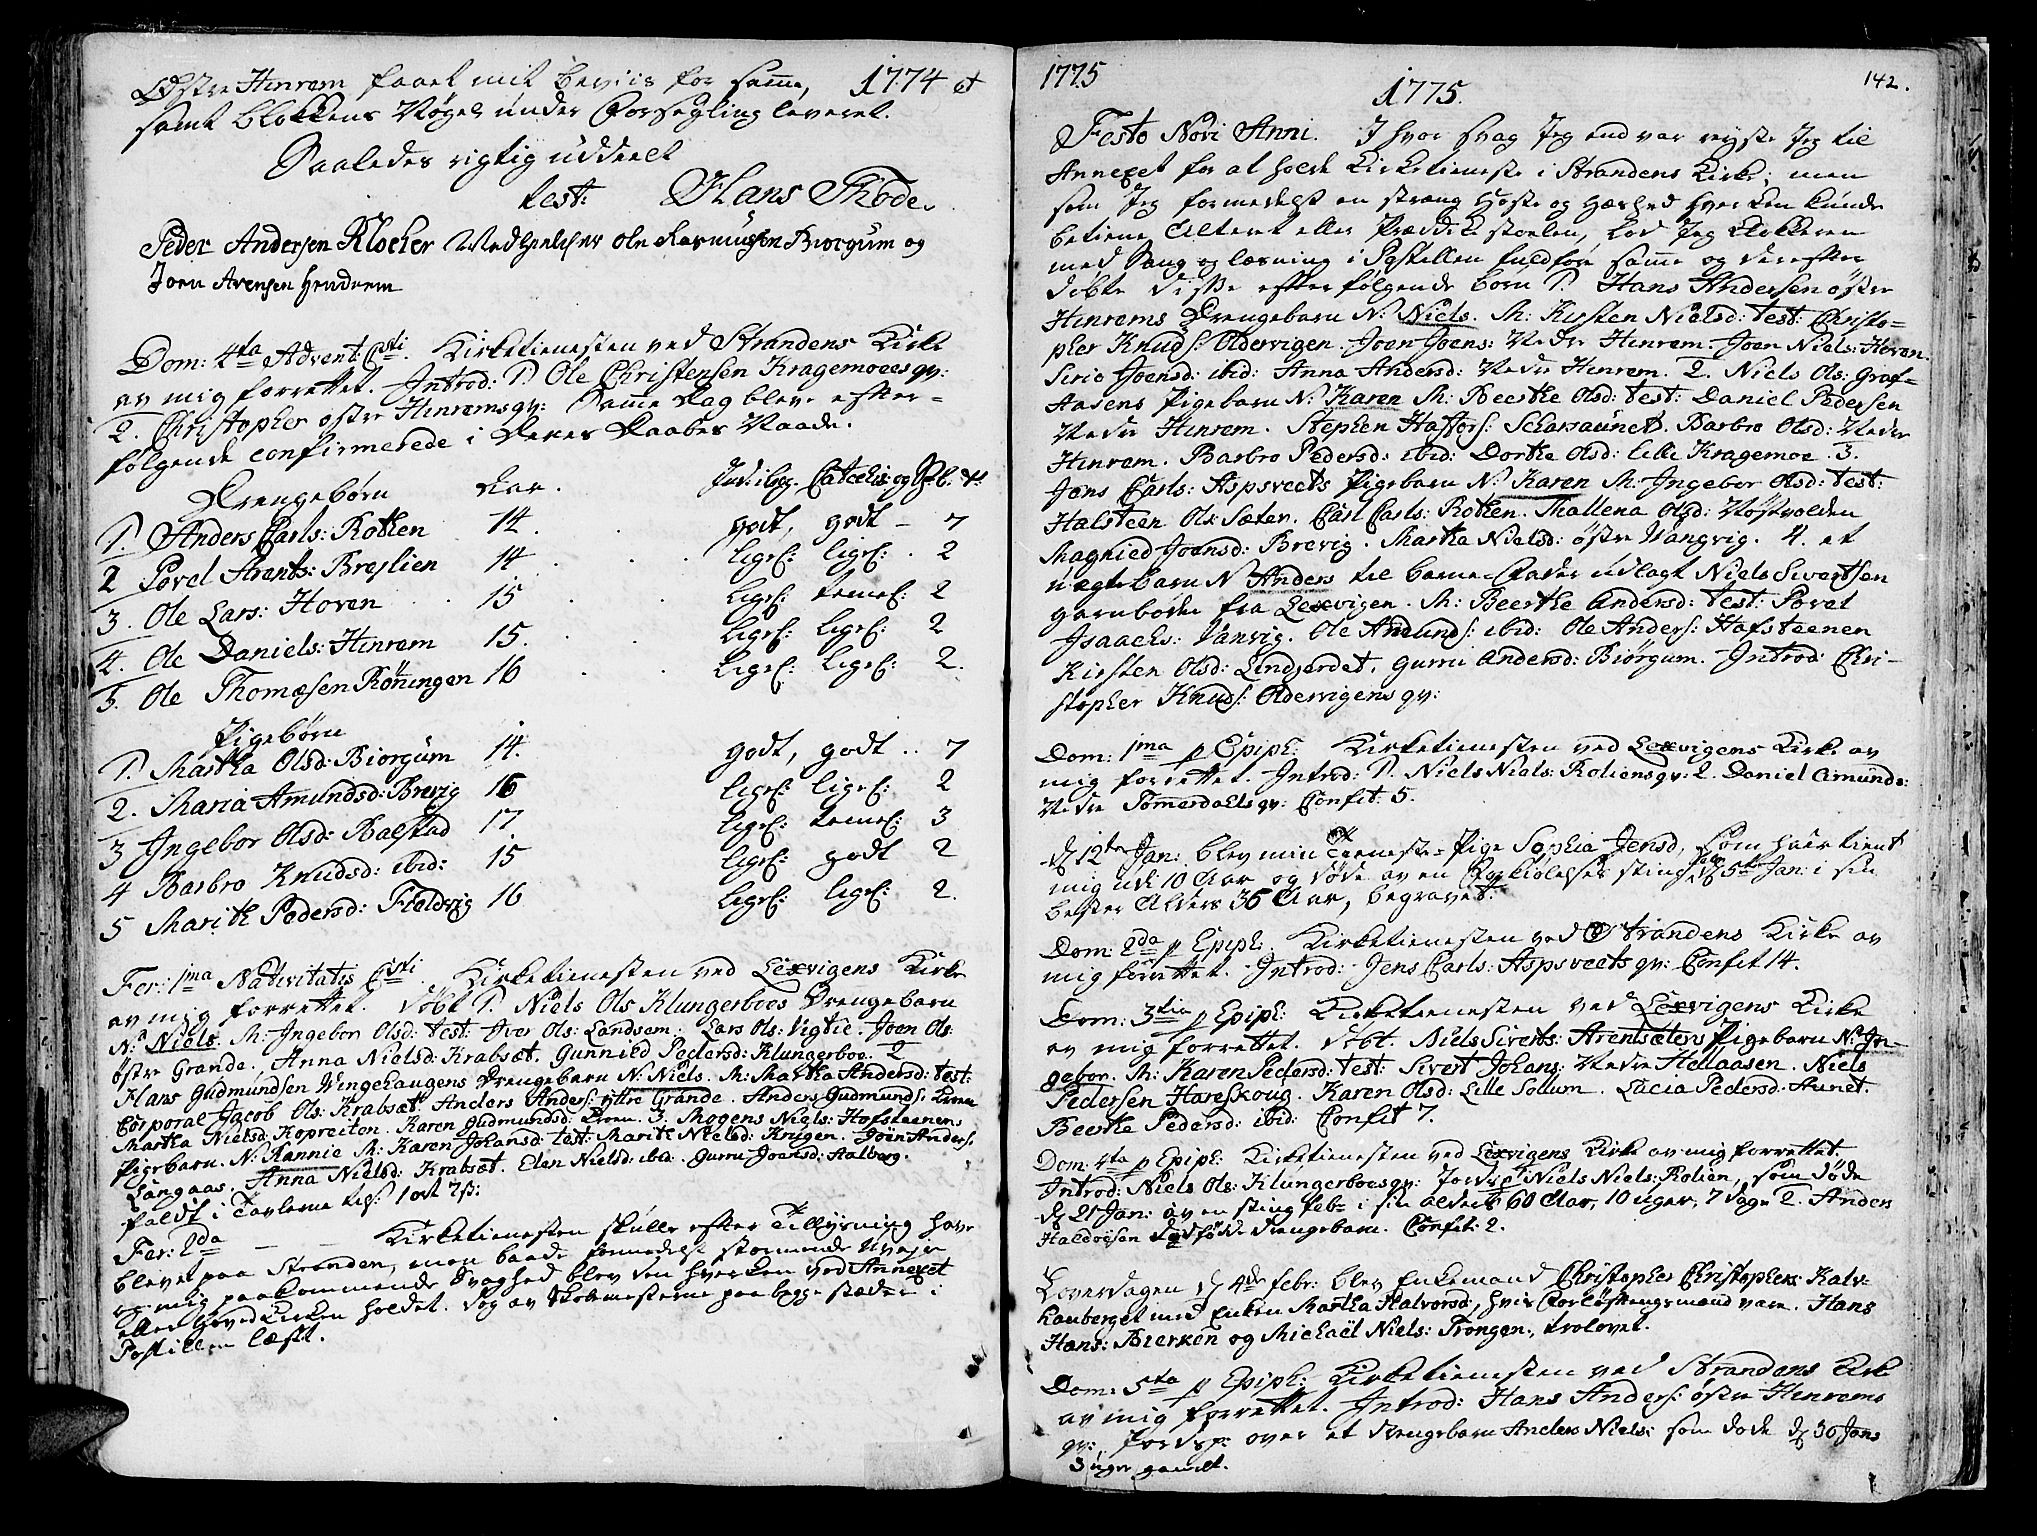 Østre Hinrem faaet mit beviis for samme, 1774 et
samt blokkens Nøgel under Forsegling leveret.
Saaledes rigtig uddeelt
test: Hans Thode.
Peder Andersen Klocher Medhielper Ole Rasmussen Biorgum og
Joen Arensen Hendrem
Dom: 4ta Advent: Csti. Kirketienesten ved Strandens Kirke
av mig forrettet. Introd: 1. Ole Christensen Kragemoees qv:
2. Christopher østre Hinrems qv: Samme dag bleve efter-
følgende confirmerede i Deres Daabes Naade.
Drengebørn Aar. Catechis: og
1. Anders Carls: Rotken 14. godt, godt - 7
2 Povel Arents: Breslien 14 ligesl: ligesl: 2
3. Ole Lars: Hoven 15 ligesl: temel: 2
4. Ole Daniels: Hinrem 15. ligesl: ligesl: 2
5. Ole Thomæsen Röningen 16 ligesl: ligesl: 2.
Pigebørn
1. Martha Olsd: Biorgum 14. godt, godt .. 7
2. Maria Amundsd: Brevig 16 ligesl: ligesl: 2
3 Ingebor Olsd: Balstad 17. ligesl: temel: 3
4 Barbro Knudsd: ibid: 15 ligesl: godt 2
5 Marith Pedersd: Floldvig 16 ligesl: ligesl: 2.
Fer: 1ma Nativitatis Csti. Kirketienesten ved Lexvigens Kirke
av mig forrettet. Døbt 1. Niels Ols Klungerboes Drengebarn
N: Niels. M: Ingebor Olsd: test: Iver Ols: Landsem: Lars Ols: Vigtil. Joen Ols:
østre Grande. Anna Nielsd: Krabsæt. Gunnild Pedersd: Klungerboe. 2
Hans Gudmundsen Vingehaugens Drengebarn N: Niels. M: Martha Andersd: test:
Corporal Jacob Ols: Krabsæt. Anders Anders: ytre Grande. Anders Gudmunds:
Martha Nielsd: Kopreiton. Karen Gudmundsd: 3. Mogens Niels: Hofsteenens
Pigebarn. N: Hannie M: Karen Johansd: test: Marith Nielsd: Krigen. Joen Anders:
Langaas. Anna Nielsd: Krabsæt. Elen Nielsd: ibid. Gurru Joensd: Aalberg.
faldt i Tavlerne 1 ort 7 s:
Fer: 2da — — Kirketienesten skulle efter Tillysning have
blevet paa Stranden, men baade formedelst stormende Uvejr
og mig paakommende Svaghed blev den hverken ved Annexet
eller HovedKirken holdet. Dog av Skolemesterne paa begge stæder i
Postillen læst.
1775 142.
1775.
Festo Novi Anni. I hvor svag Jeg end var reyste Jeg til
Annexet for at holde Kirketieneste i Strandens Kirke; men
som Jeg formedelst en strang Hoste og Hæshed hverken kunde
betiene Alteret eller Prædikestoelen, lod Jeg Klokkeren
med Sang og læsning i Postillen fuldføre samme og derefter
døbte disse efterfølgende børn 1. Hans Andersen østre
Hinrems Drengebarn N: Niels. M: Kirsten Nielsd: test: Christo-
pher Knuds: Oldervigen. Joen Joens: Nedre Hinrem. Joen Niels: Hoven.
Siric Joensd: ibid: Anna Andersd: Nedre Hinrem. 2. Niels Ols: Graf-
Aasens Pigebarn N: Karen M: Beerthe Olsd: test: Daniel Pedersen
Nedre Hinrem. Stephen Haftors: Scharsaunet. Barbro Olsd: Nedre
Hinrem. Barbro Pedersd: ibid: Dorthe Olsd: lille Kragemoe. 3.
Jens Carls: Aspsveets Pigebarn N: Karen M: Ingebor Olsd: test:
Halsteen Ols: Sæter. Carl Carls: Rotken. Mallena Olsd: Nöstvolden
Magnild Joensd: Brevig. Martha Nielsd: østre Vangvig. 4. et
uægte barn N Anders til barne-Fader udlagt Niels Sivertsen
garnboden fra Lexvigen. M: Beerthe Andersd: test: Povel
Isaachs: Vanvig. Ole Amunds: ibid: Ole Anders: Hafsteenen
Kirsten Olsd: Lindgerdet. Gurru Andersd: Biörgum. Introd: Chri-
stopher Knuds: Oldervigens qv:
Dom: 1ma p Epiph: Kirketienesten ved Lexvigens Kirke av
mig forrettet. Introd: 1. Niels Niels: Roliens qv: 2. Daniel Amunds:
Nedre Tømerdahls qv: Confit: 5.
d 12te Jan: blev min Tieneste-Pige Sophia Jensd, som hver tient
mig udi 10 Aar og døde av en Forkiølelses sting d 5te Jan: i sin
bester Alders 36 Aar, begravet.
Dom: 2da p Epiph: Kirketienesten ved Strandens Kirke av
mig forrettet. Introd: Jens Carls: Aspsveets qv: Confit 14.
Dom: 3tia p Epiph: Kirketienesten ved Lexvigens Kirke
av mig forrettet. Døbt. Niels Siverts: Arentsætens Pigebarn N: In-
gebor. M: Karen Pedersd: test: Sivert Johans: Nedre Hellaasen. Niels
Pedersen Hareskoug. Karen Olsd: Lille Solium. Lucia Pedersd: Aunet.
Beerthe Pedersd: ibid: Confit 7.
Dom: 4ta p Epiph: Kirketienesten ved Lexvigens Kirke av mig forrettet.
Introd: Niels Ols: Klungerboes qv: Jordsp Niels Niels: Rolien, som døde
d 21 Jan: av en sting feb: i sin alders 60 Aar, 10 uger, 7 dage 2. Anders
Haldorsen dødfødde drengebarn. Confit: 2.
Loverdagen d 4de febr: blev Enkemand Christopher Christophers: Kalv-
hauberget med Enken Martha Halvorsd, hvis Forløftningsmænd vare. Hans
Hans: Bierken og Michaël Niels: Trongen, trolovet.
Dom: 5ta p Epiph: Kirketienesten ved Strandens Kirk
av mig forrettet. Introd: Hans Anders: østre Hinrems
qv: Jordsp: over et drengebarn Anders Niels: som døde d 30 Jan:
3 uger gamelt.